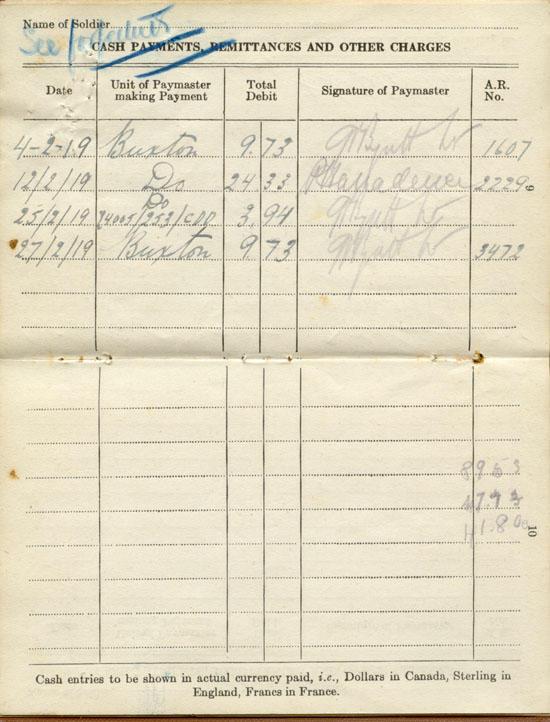 Name of Soldier
See
CASH PAYMENTS, REMITTANCES AND OTHER CHARGES
Date Unit of Paymaster making Payment Total Debit Signature of Paymaster A.R. No.
4-2-19 Buxton 9.73 1607
12/2/19 Do 24 33 2229
9
Do
25/2/19 3.94
27/2/19 Buxton 9.73 3472
10
Cash entries to be shown in actual currency paid, i.e., Dollars in Canada, Sterling in
England, Francs in France.